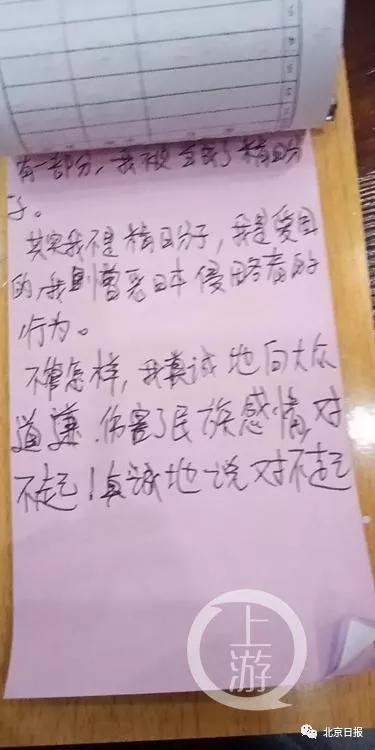 有一部分，我被 当成了精日分
子。
其实我不是精日分子，我是爱国
的，我則憎恶日本侵略者的
行为。
不管怎样，我真诚地向大众
道歉.伤害了民族感情,对
不起！真诚地说对不起
上游
北京日报